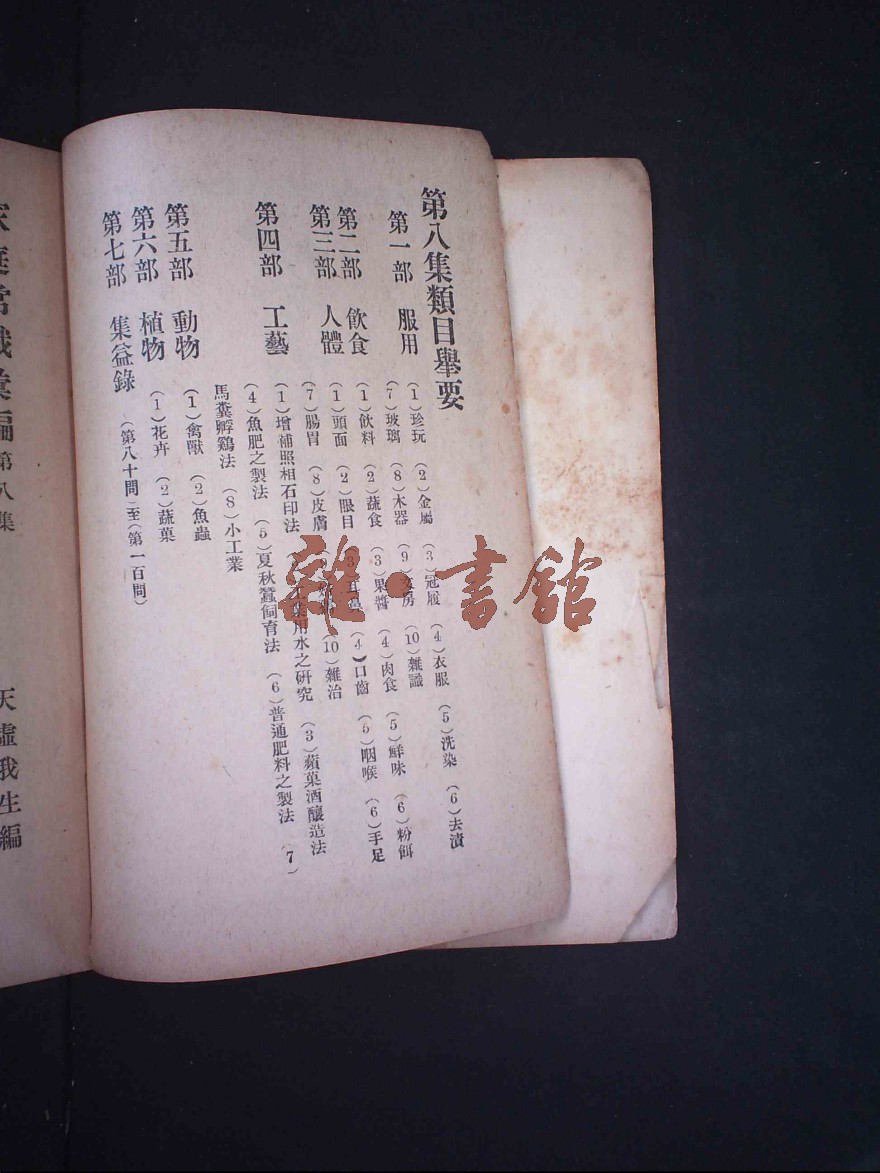 第八集類目舉要
第一部 服用 (1)珍玩 (2)金屬 (3)冠履 (4)衣服 (5)洗染 (6)去漬
(7)玻璃 (8)木器 (9)房 (10)雜識
第二部 飲食 (1)飲料 (2)蔬食 (3)果醬 (4)肉食 (5)鮮味 (6)粉餌
第三部 人體 (1)頭面 (2)眼目 (3)耳鼻 (4)口齒 (5)咽喉 (6)手足
(7)腸胃 (8)皮膚 (10)雜治
第四部 工藝 (1)增補照相石印法 工業用水之硏究 (3)蘋菓酒釀造法
(4)魚肥之製法 (5)夏秋蠶飼育法 (6)普通肥料之製法 (7)
馬糞孵鷄法 (8)小工業
第五部 動物 (1)禽獸 (2)魚蟲
第六部 植物 (1)花卉 (2)蔬菓
第七部 集益錄 (第八十問)至(第一百問)
家庭常識彙編第八集
天虛我生編
雜·書館